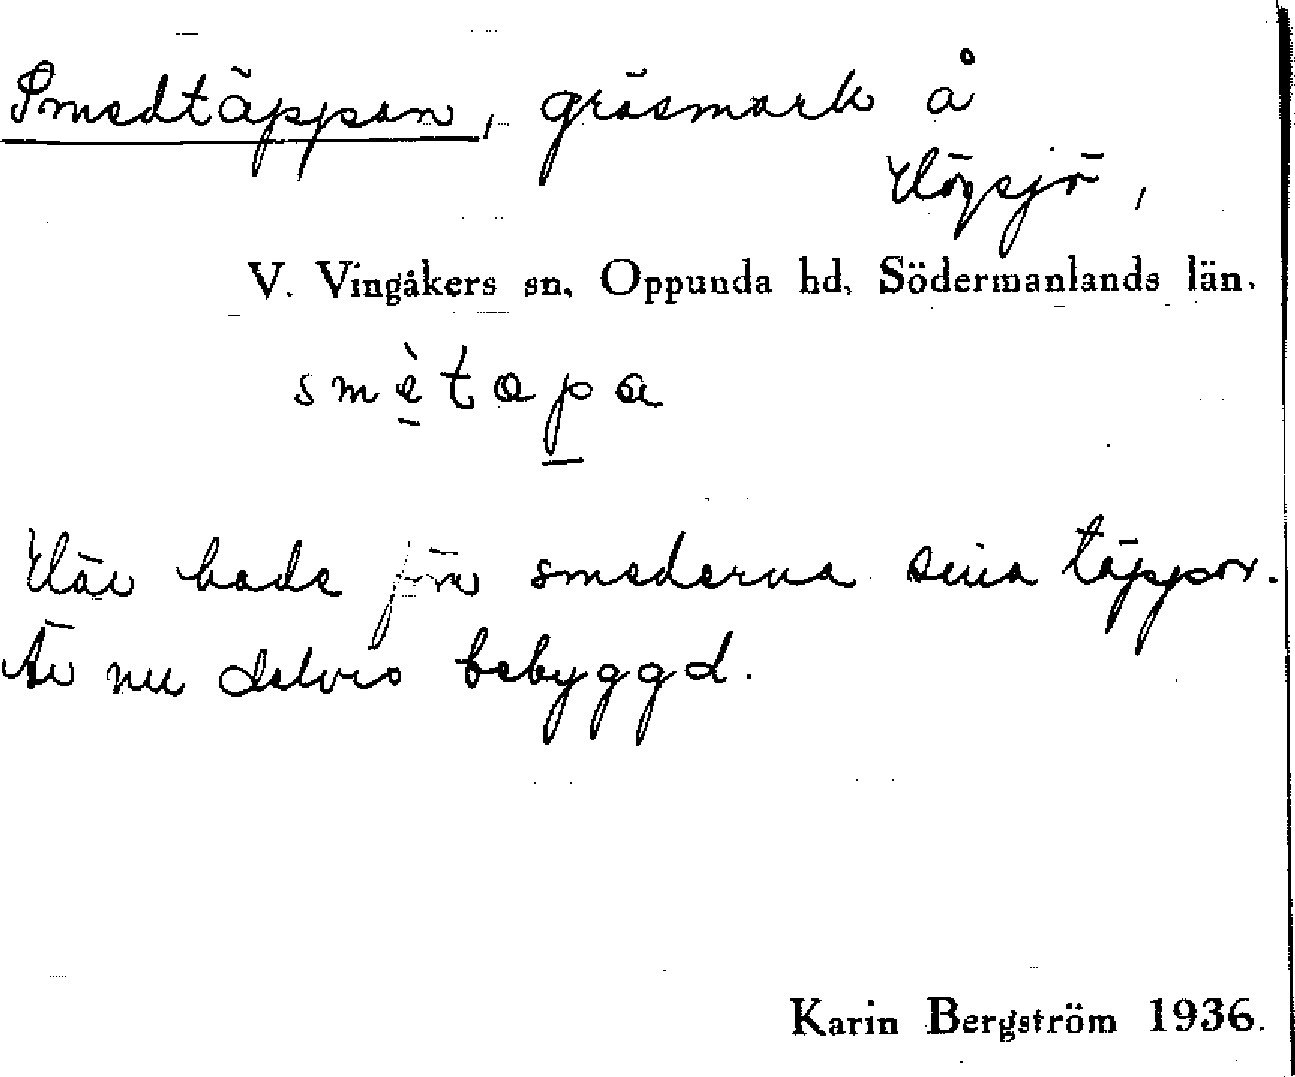 Smedtäppan, gräsmark å
Högsjö,
V. Vingåkers sn, Oppunda hd, Södermanlands län.
smè̱tap̱a
Här hade förr smederna sina täppor.
Är nu delvis bebyggd.
Karin Bergström 1936.